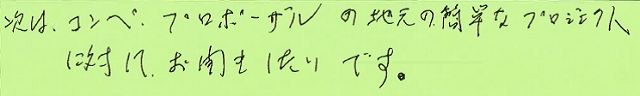 次は、コンペ、プロポーザルの地元の簡単なプロジェクト
に対して、お聞きしたいです。